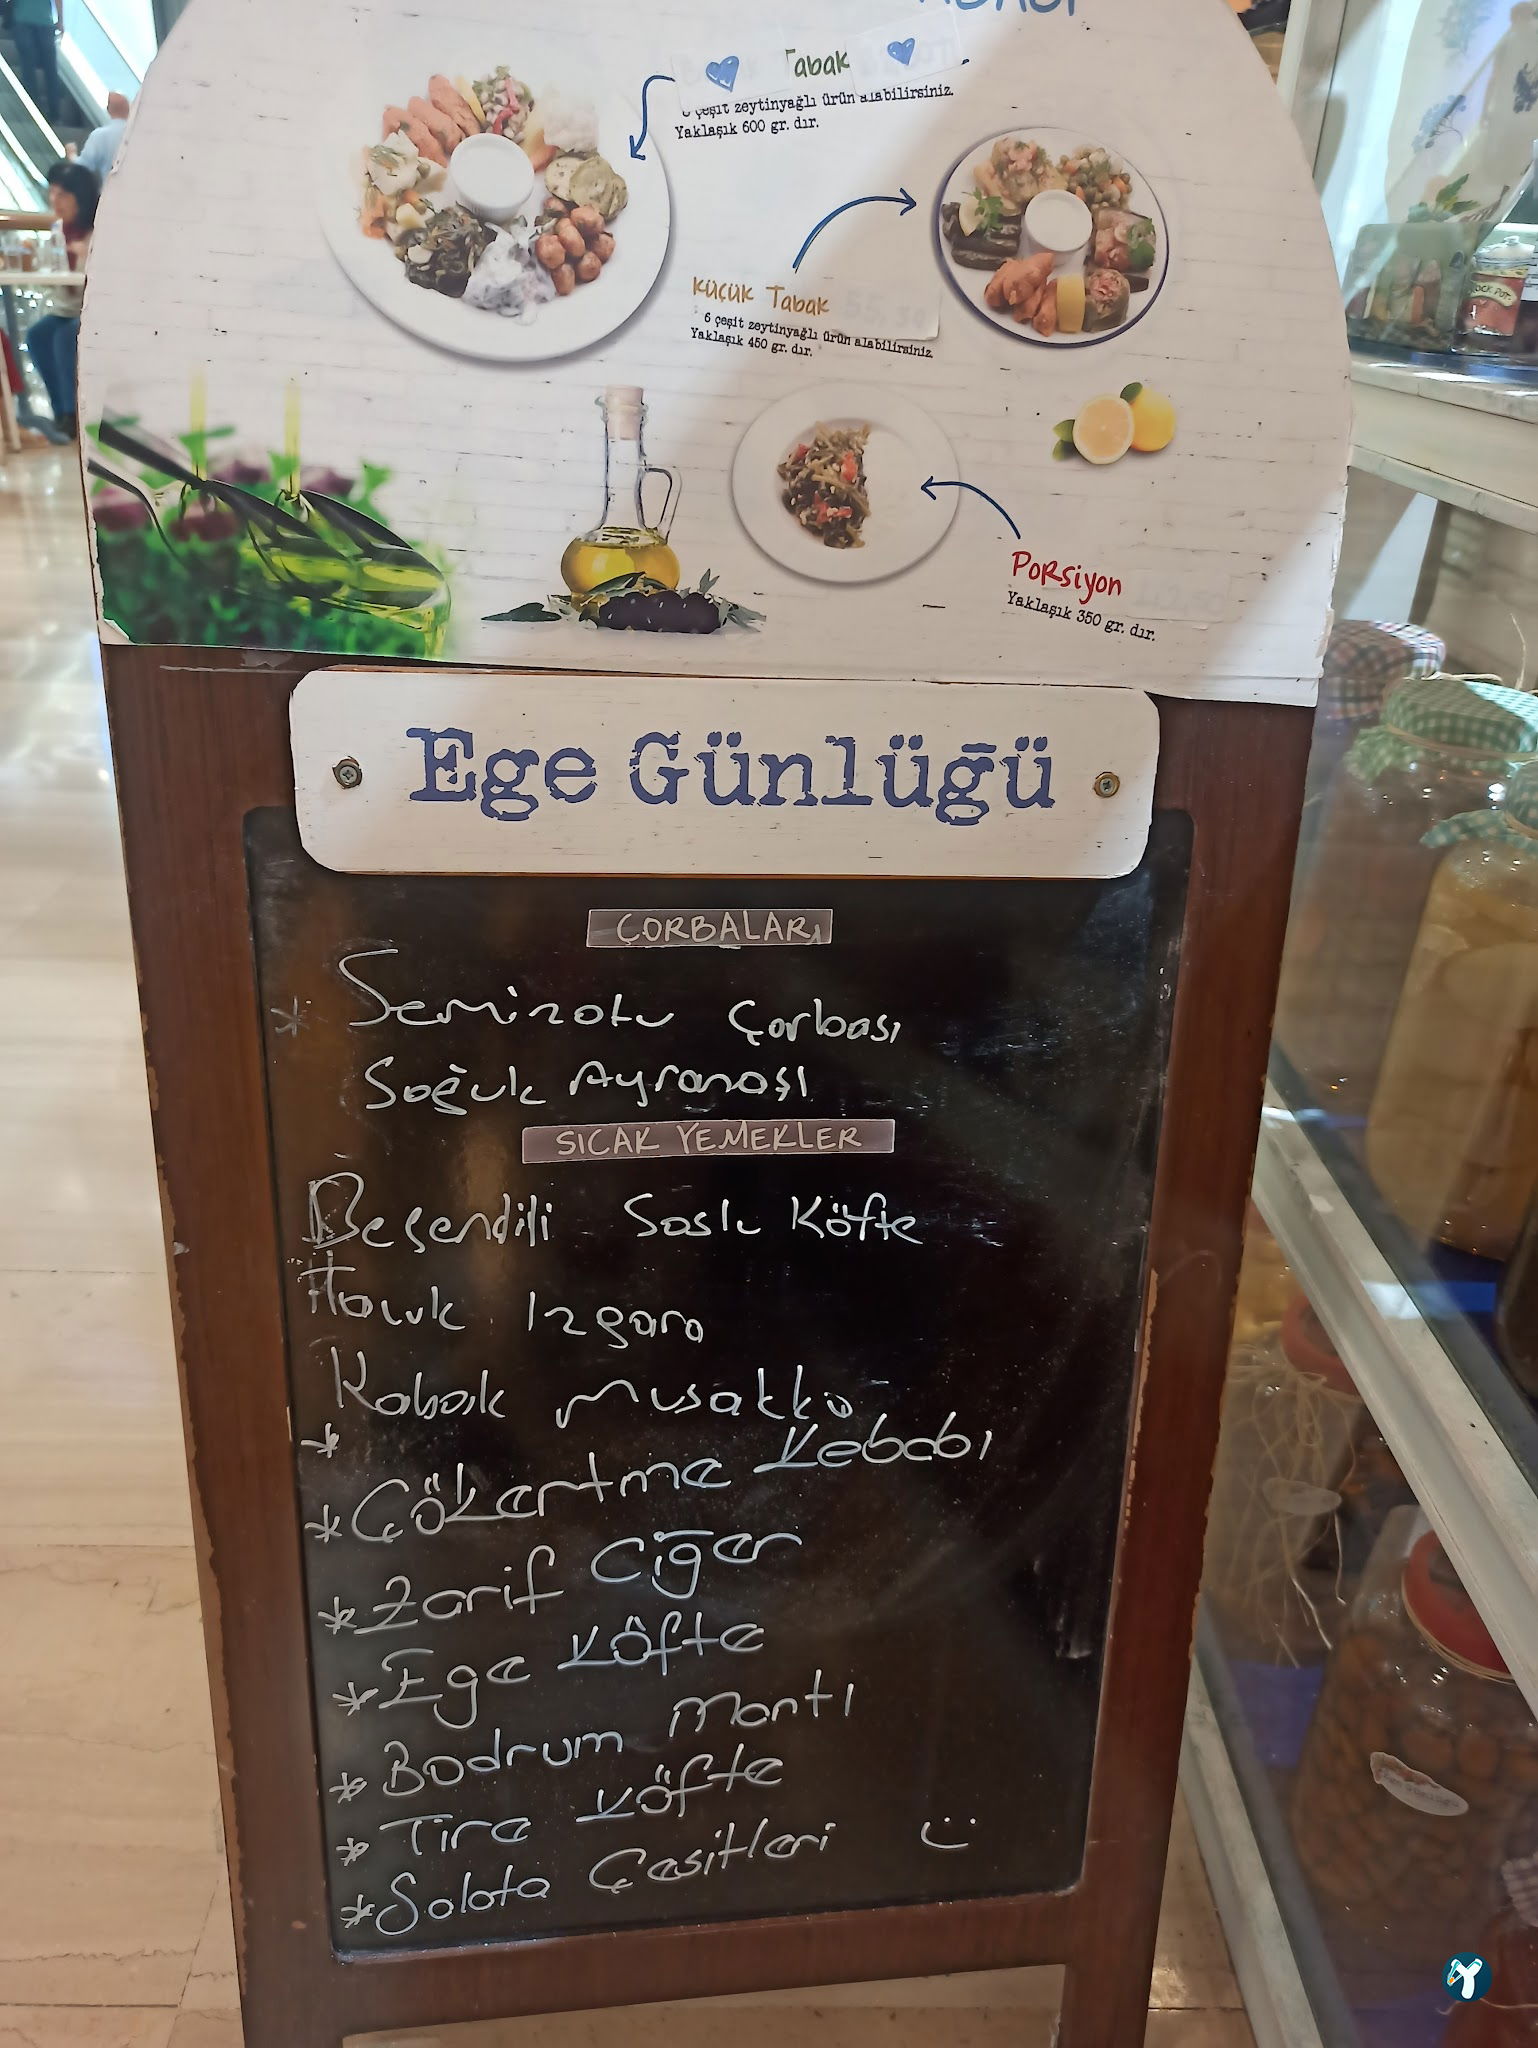 Tabak
çeşit zeytinyağlı ürün alabilirsiniz.
Yaklaşık 600 gr. dır.
Küçük Tabak
6 çeşit zeytinyağlı ürün alabilirsiniz
Yaklaşık 450 gr. dır.
Porsiyon
Yaklaşık 350 gr. dır.
Ege Günlüğü
ÇORBALAR
* Semizotu Çorbası
Soğuk Ayranaşı
SICAK YEMEKLER
Beşendili Soslu Köfte
Tavuk Izgara
Kabak Musakka
*
* Çökertme Kebabı
* Zarif Ciğer
* Ege Köfte
* Bodrum Mantı
* Tire Köfte
* Salata Çesitleri